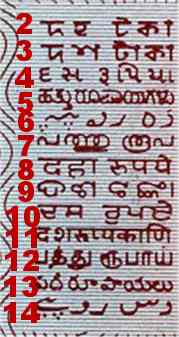 2 দহ টকা
3 দশ টাকা
4 દસ રૂપિયા
5 ಹತ್ತು ರೂಪಾಯಿಗಳು
6
7 പത്തു രൂപ
8 दहा रुपये
9 ଦଶ ଟଙ୍କା
10 ਦਸ ਰੁਪਏ
11 दशरूप्यकाणि
12 பத்து ரூபாய்
13 పది రూపాయలు
14 دس روپیے